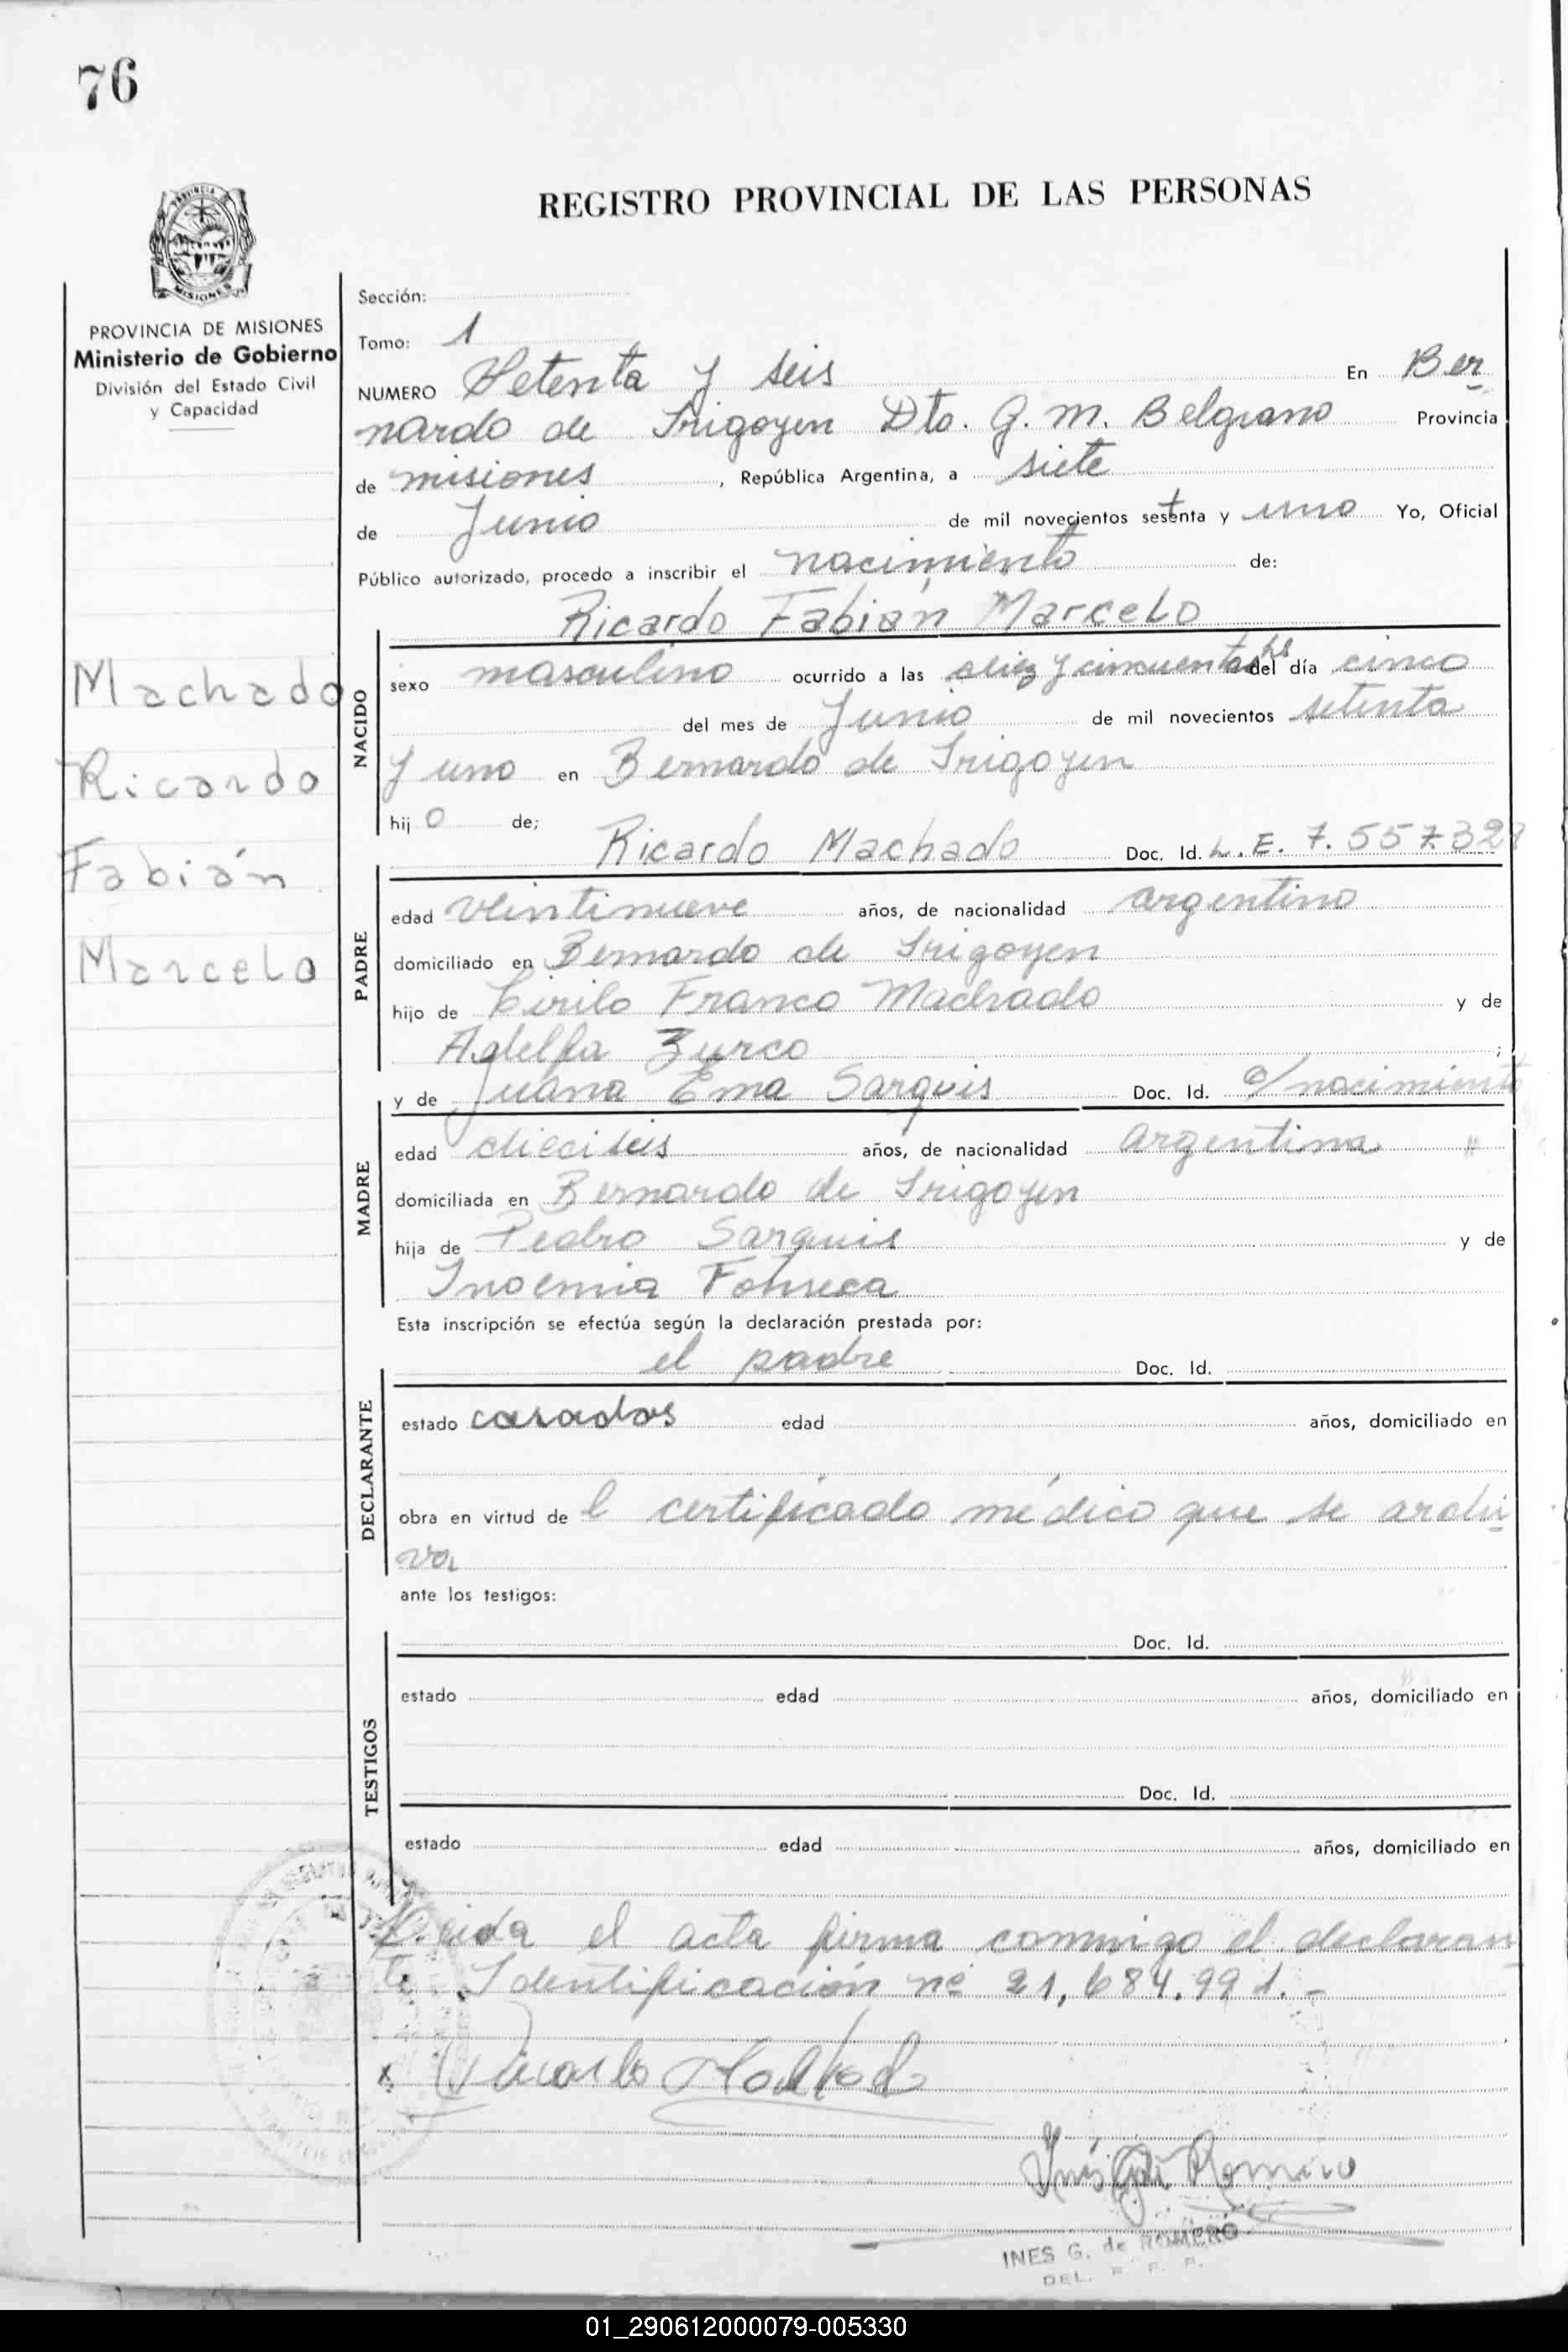 76
REGISTRO PROVINCIAL DE LAS PERSONAS
PROVINCIA
MISIONES
PROVINCIA DE MISIONES
Ministerio de Gobierno
División del Estado Civil
y Capacidad
Machado
Ricardo
Fabián
Marcelo
Sección:
Tomo: 1
NUMERO Setenta y seis En Ber
nardo de Irigoyen Dto. G. M. Belgrano Provincia
de misiones, República Argentina, a siete
de Junio de mil novecientos setenta y uno Yo, Oficial
Público autorizado, procedo a inscribir el nacimiento de:
Ricardo Fabián Marcelo
NACIDO
sexo masculino ocurrido a las diez y cincuenta hs del día cinco
del mes de Junio de mil novecientos setenta
y uno en Bernardo de Irigoyen
hijo de;
Ricardo Machado Doc. Id. L.E. 7.557.328
PADRE
edad veintinueve años, de nacionalidad argentino
domiciliado en Bernardo de Irigoyen
hijo de Cirilo Franco Machado y de
Adelfa Zurco ;
y de Juana Ema Sarquis Doc. Id. c/nacimiento
MADRE
edad dieciseis años, de nacionalidad argentina
domiciliada en Bernardo de Irigoyen
hija de Pedro Sarquis y de
Inoemia Fonseca
Esta inscripción se efectúa según la declaración prestada por:
el padre Doc. Id.
DECLARANTE
estado casados edad años, domiciliado en
obra en virtud del certificado médico que se archi
va
ante los testigos:
Doc. Id.
TESTIGOS
estado edad años, domiciliado en
Doc. Id.
estado edad años, domiciliado en
Leida el acta firma conmigo el declaran
te. Identificación nº 21,684.991.-
x Ricardo Machado
Inés G. de Romero
INES G. de ROMERO
DEL. R. P. P.
01_290612000079-005330